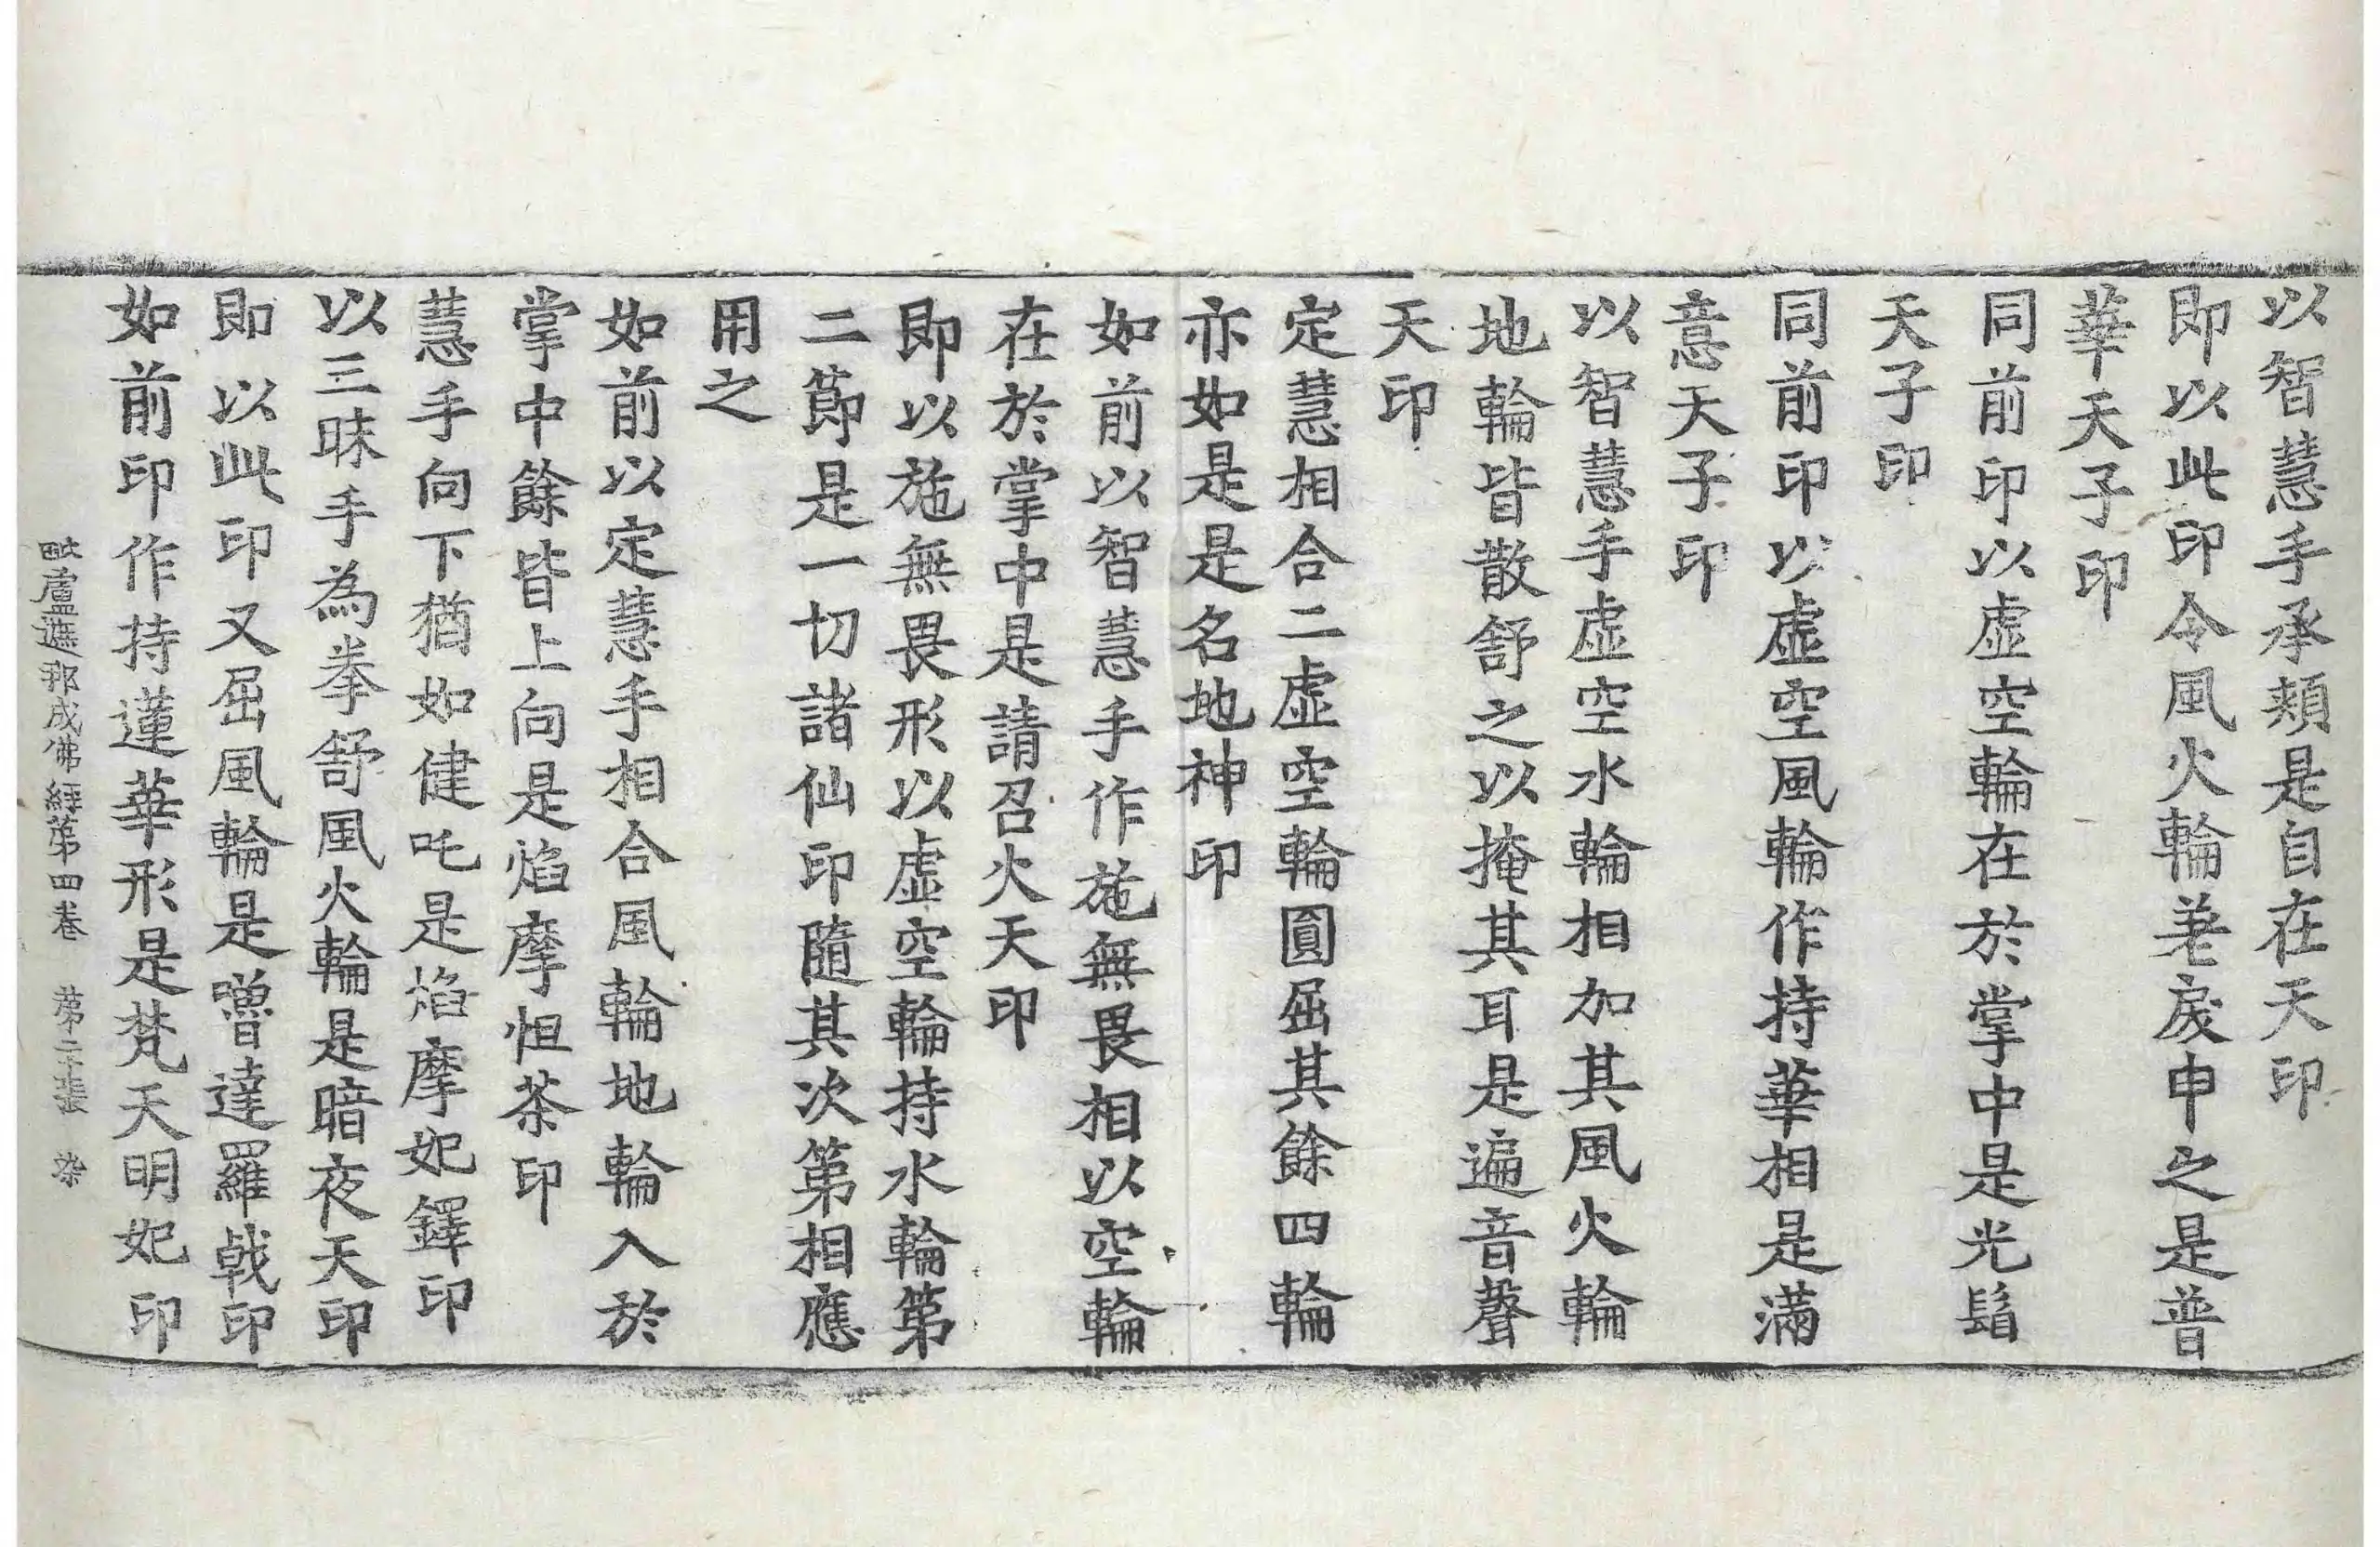 以智慧手承頰是自在天印
即以此印令風火輪差戾申之是普
華天子印
同前印以虛空輪在於掌中是光鬘
天子印
同前印以虛空風輪作持華相是滿
意天子印
以智慧手虛空水輪相加其風火輪
地輪皆散舒之以掩其耳是遍音聲
天印
定慧相合二虛空輪圓屈其餘四輪
亦如是是名地神印
如前以智慧手作施無畏相以空輪
在於掌中是請召火天印
即以施無畏形以虛空輪持水輪第
二節是一切諸仙印隨其次第相應
用之
如前以定慧手相合風輪地輪入於
掌中餘皆上向是焰摩怛茶印
慧手向下猶如健吒是焰摩妃鐸印
以三昧手為拳舒風火輪是暗夜天印
即以此印又屈風輪是嚕達羅戟印
如前印作持蓮華形是梵天明妃印
毗盧遮那成佛經第四卷 第二十張 染